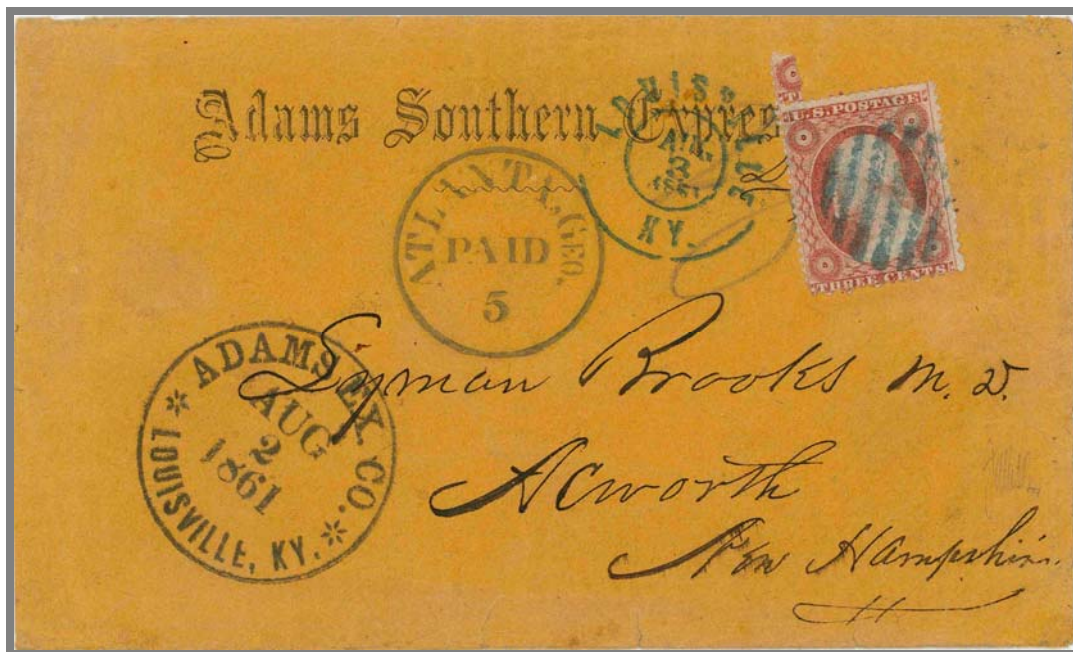 Adams Southern Expres
LOUISVILLE
AUG.
2
1861
KY.
U.S. POSTAGE
THREE CENTS
ATLANTA, GEO.
PAID
5
ADAMS EX. CO.
AUG
2
1861
LOUISVILLE, KY.
Lyman Brooks M. D.
Acworth
New Hampshire.